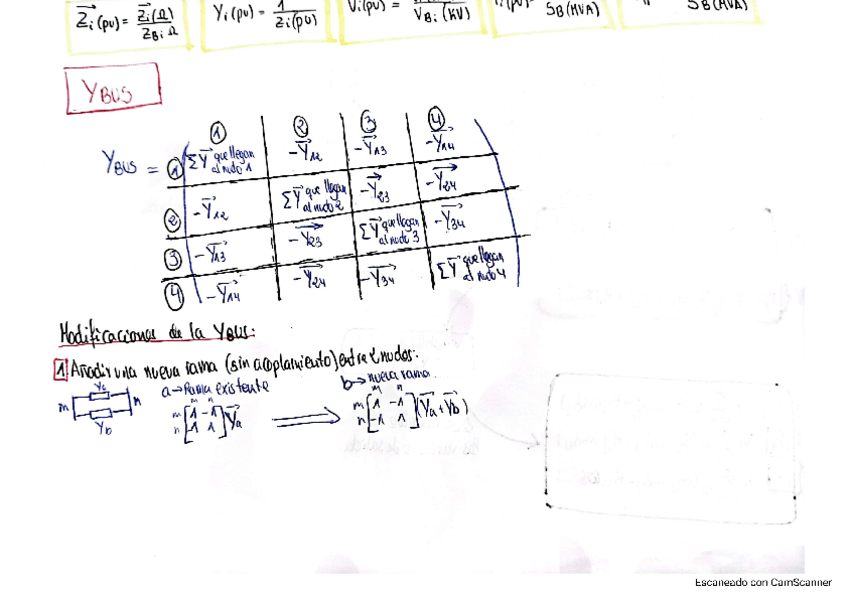 Zi(pu) = Zi(Ω) / ZBi Ω
Yi(pu) = 1 / Zi(pu)
Vi(pu) = VBi(KV)
SB(MVA)
SB(MVA)
YBUS
① ② ③ ④
YBUS = ① ΣY que llegan al nudo 1 -Y12 -Y13 -Y14
② -Y12 ΣY que llegan al nudo 2 -Y23 -Y24
③ -Y13 -Y23 ΣY que llegan al nudo 3 -Y34
④ -Y14 -Y24 -Y34 ΣY que llegan al nudo 4
Modificaciones de la YBUS:
1 Añadir una nueva rama (sin acoplamiento) entre 2 nudos:
a→Rama existente
b→nueva rama
m Ya n
Yb
m n
m [1 -1
n -1 1] Ya
m n
m [1 -1
n -1 1] (Ya+Yb)
Escaneado con CamScanner